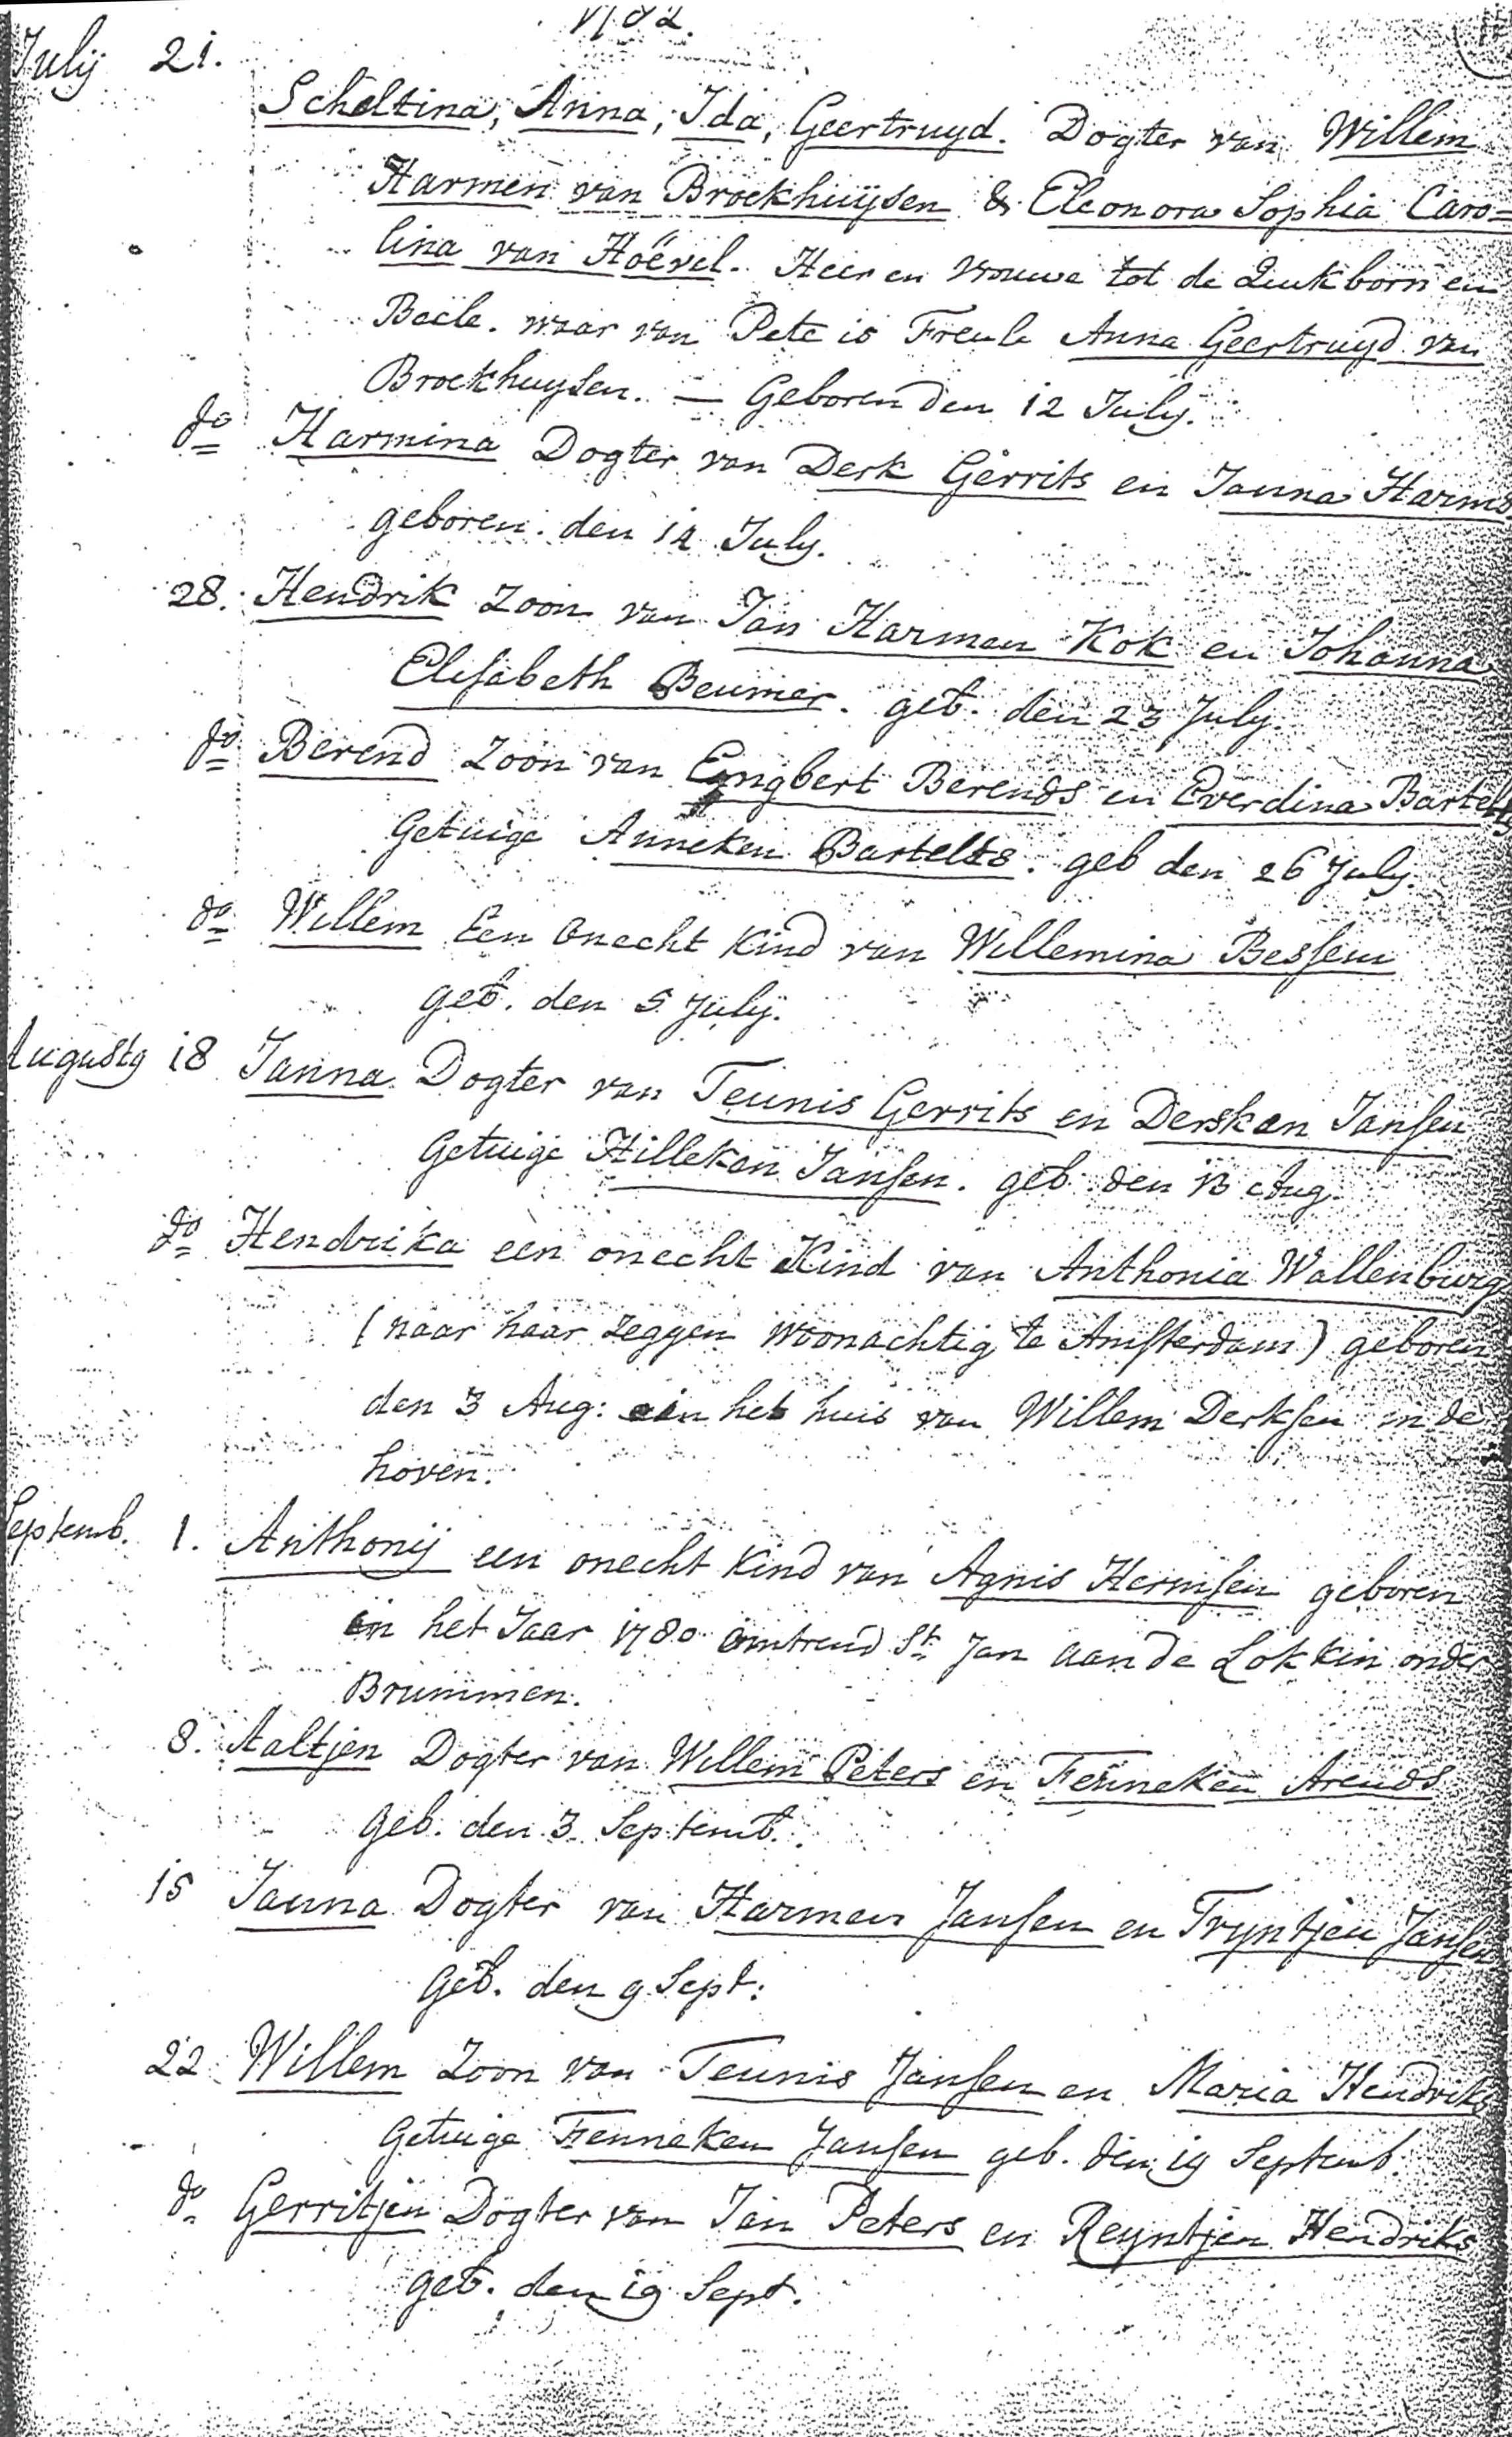 1782.
July 21.
Scheltina, Anna, Ida, Geertruyd. Dogter van Willem
Harmen van Broekhuijsen & Eleonora Sophia Caro=
lina van Höevel. Heer en Vrouwe tot de en
Baele. waar van Pete is Freule Anna Geertruyd van
Broekhuysen. — Geboren den 12 July.
do Harmina Dogter van Derk Gerrits en Janna Harms
geboren den 12 July.
28. Hendrik Zoon van Jan Harmen Kok en Johanna
Elisabeth Beumer. geb. den 23 July.
do Berend Zoon van Engbert Berends en Everdina Bartels
Getuige Anneken Bartelts. geb den 26 July.
do Willem Een Onecht Kind van Willemina Bessem
geb. den 5 July.
Augustg 18 Janna Dogter van Teunis Gerrits en Dersken Jansen
Getuige Hilleken Jansen. geb. den 13 Aug.
do Hendrika een onecht Kind van Anthonia Wallenburg
(naar haar zeggen woonachtig te Amsterdam) geboren
den 3 Aug: in het huis van Willem Derksen in de
hoven.
Septemb. 1. Anthonij een onecht Kind van Agnis Hermsen geboren
in het Jaar 1780 omtrend St. Jan aan de Lokkin onder
Brummen.
8. Aaltjen Dogter van Willem Peters en Fenneken Arends
Geb. den 3 Septemb.
15 Janna Dogter van Harmen Jansen en Tryntjen Jansen
Geb. den 9 Sept:
22 Willem Zoon van Teunis Jansen en Maria Hendriks
Getuige Fenneken Jansen geb. den 19 Septemb.
do Gerritjen Dogter van Jan Peters en Reyntjen Hendriks
geb. den 19 Sept.